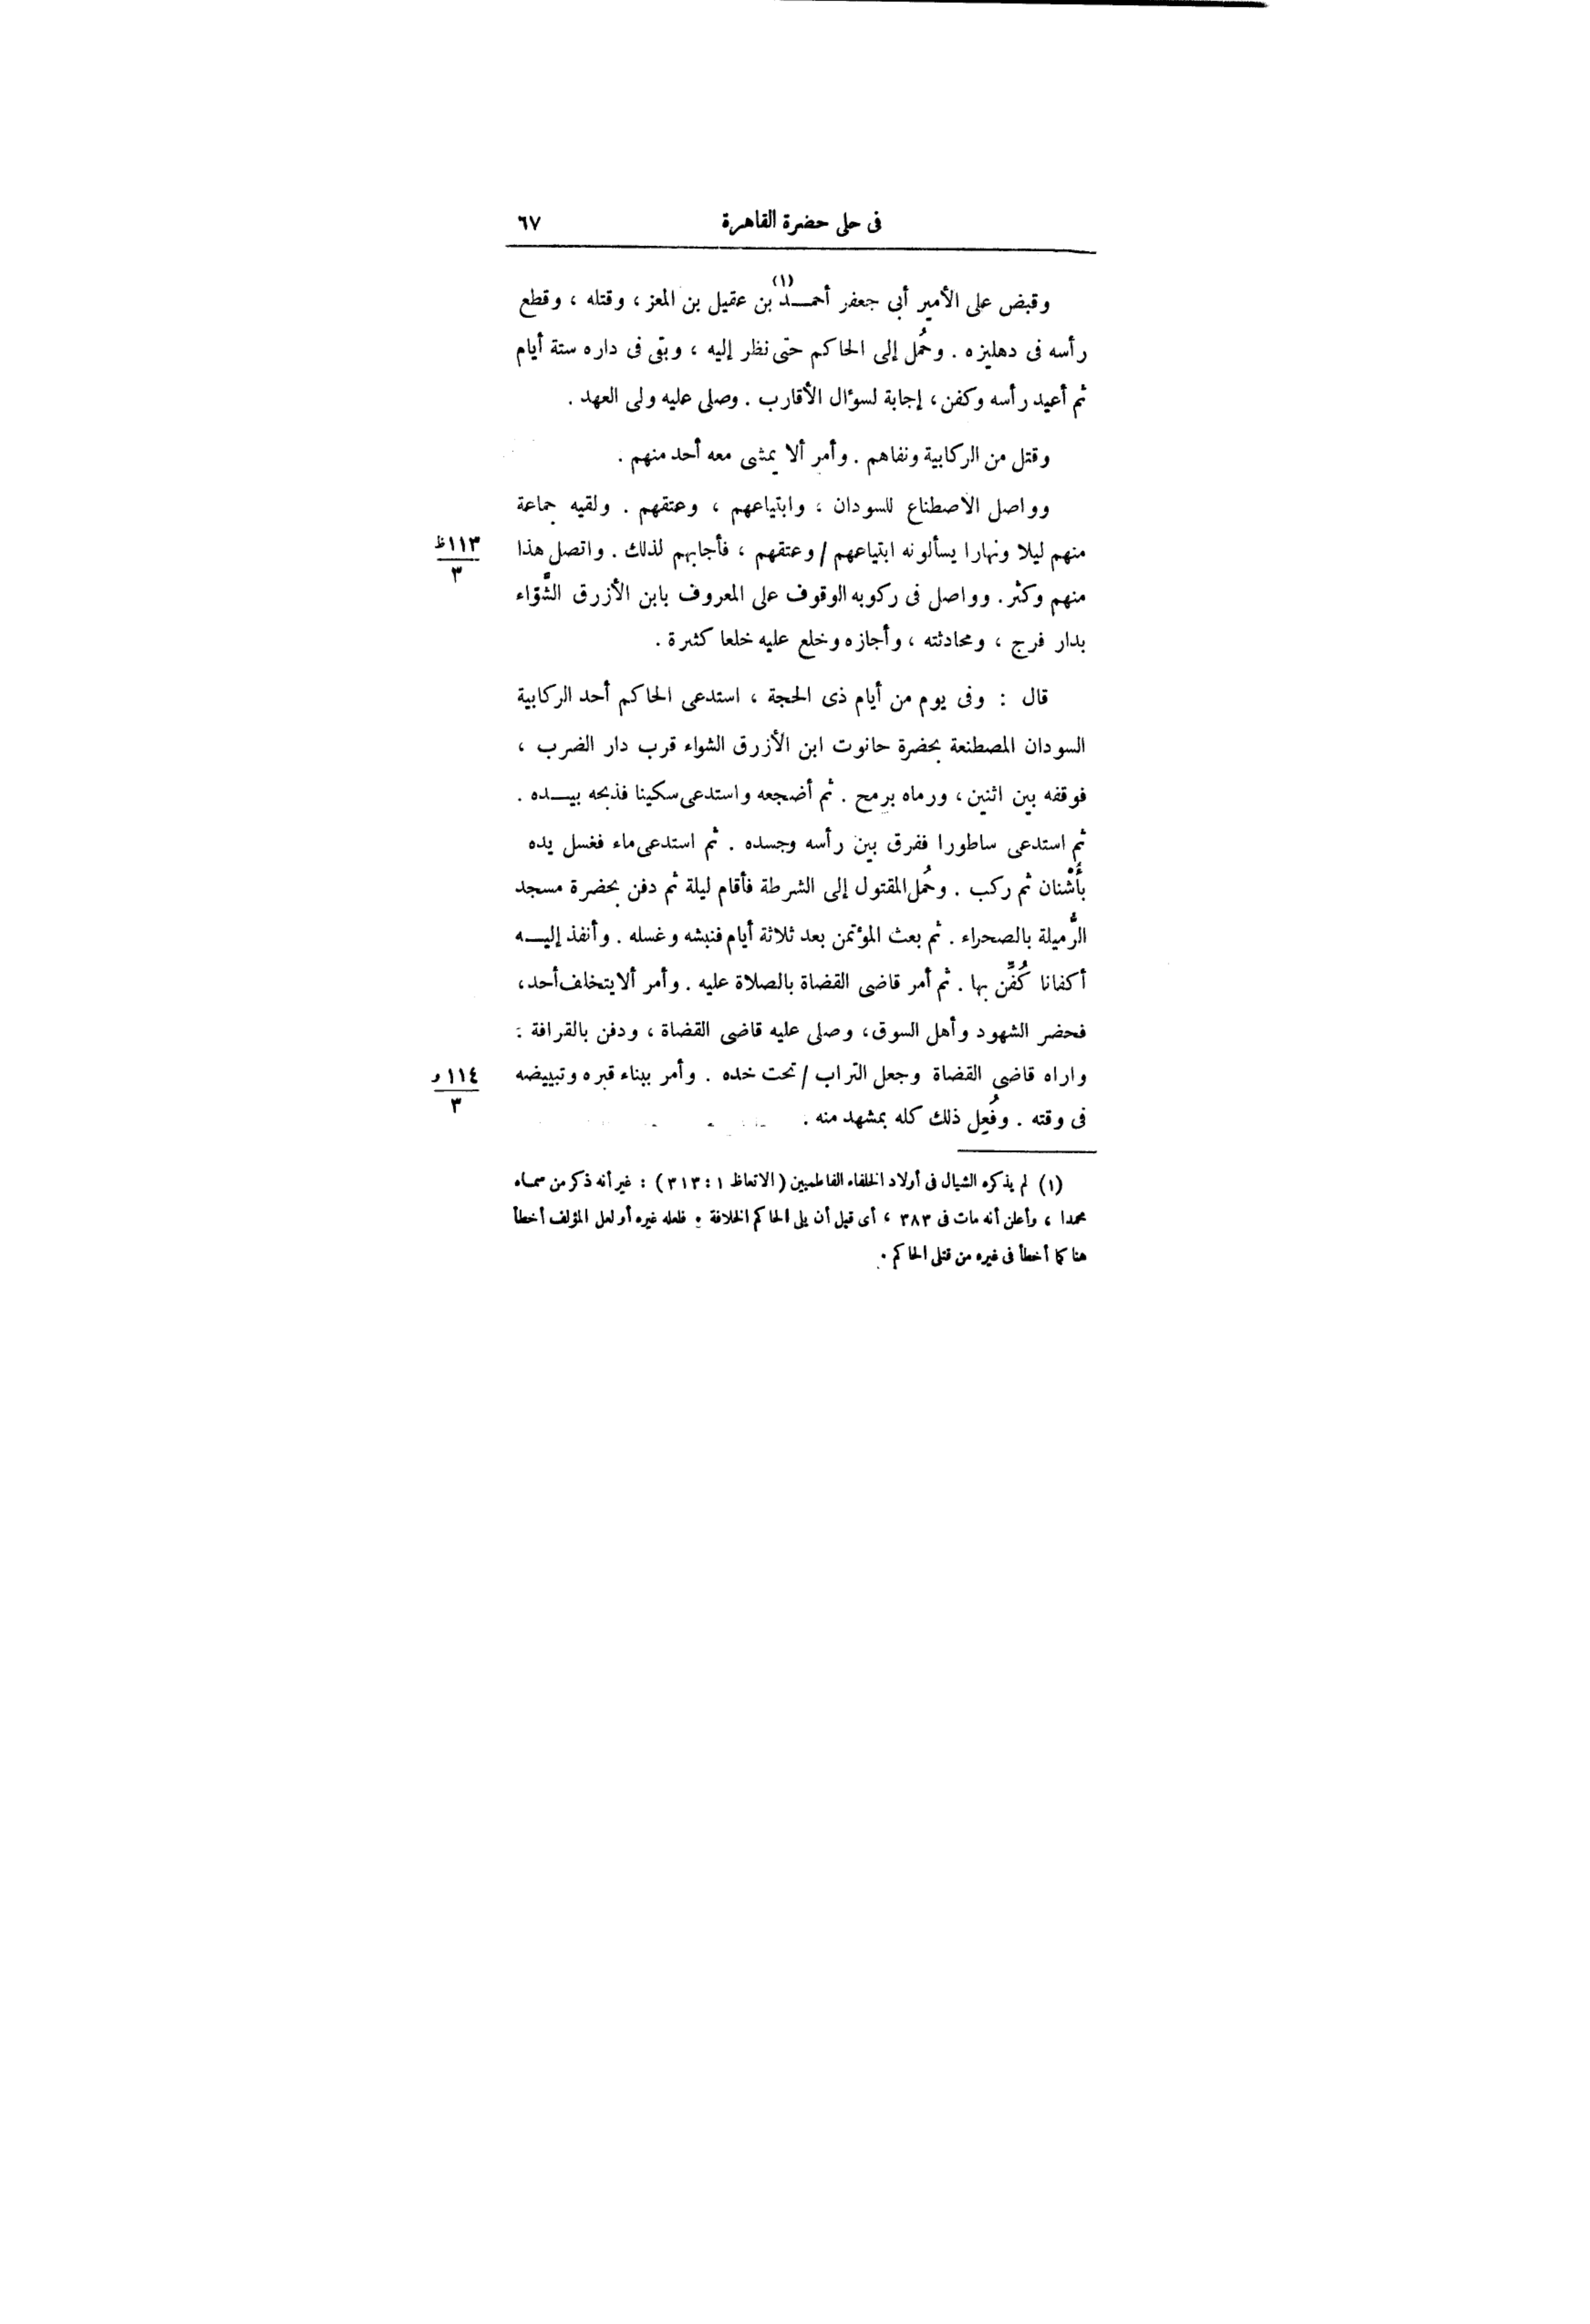 فى حلى حضرة القاهرة ٦٧
وقبض على الأمير أبى جعفر أحمـــد(١) بن عقيل بن المعز ، وقتله ، وقطع
رأسه فى دهليزه . وحُمل إلى الحاكم حتى نظر إليه ، وبقى فى داره ستة أيام
ثم أعيد رأسه وكفن ، إجابة لسؤال الأقارب . وصلى عليه ولى العهد .
وقتل من الركابية ونفاهم . وأمر ألا يمشى معه أحد منهم .
وواصل الاصطناع للسودان ، وابتياعهم ، وعتقهم . ولقيه جماعة
منهم ليلا ونهارا يسألونه ابتياعهم / وعتقهم ، فأجابهم لذلك . واتصل هذا
١١٣ظ
٣
منهم وكثر . وواصل فى ركوبه الوقوف على المعروف بابن الأزرق الشَّوّاء
بدار فرج ، ومحادثته ، وأجازه وخلع عليه خلعا كثيرة .
قال : وفى يوم من أيام ذى الحجة ، استدعى الحاكم أحد الركابية
السودان المصطنعة بحضرة حانوت ابن الأزرق الشواء قرب دار الضرب ،
فوقفه بين اثنين ، ورماه برمح . ثم أضجعه واستدعى سكينا فذبحه بيـــده .
ثم استدعى ساطورا ففرق بين رأسه وجسده . ثم استدعى ماء فغسل يده
بأُشْنان ثم ركب . وحُمل المقتول إلى الشرطة فأقام ليلة ثم دفن بحضرة مسجد
الرُّميلة بالصحراء . ثم بعث المؤتمن بعد ثلاثة أيام فنبشه وغسله . وأنفذ إليـــه
أكفانا كُفِّن بها . ثم أمر قاضى القضاة بالصلاة عليه . وأمر ألا يتخلف أحد ،
فحضر الشهود وأهل السوق ، وصلى عليه قاضى القضاة ، ودفن بالقرافة :
واراه قاضى القضاة وجعل التراب / تحت خده . وأمر ببناء قبره وتبييضه
١١٤ و
٣
فى وقته . وفُعِل ذلك كله بمشهد منه .
(١) لم يذكره الشيال فى أولاد الخلفاء الفاطميين ( الاتعاظ ١ : ٣١٣ ) : غير أنه ذكر من سمـاه
محمدا ، وأعلن أنه مات فى ٣٨٣ ، أى قبل أن يلى الحاكم الخلافة . فلعله غيره أو لعل المؤلف أخطأ
هنا كما أخطأ فى غيره من قتلى الحاكم .